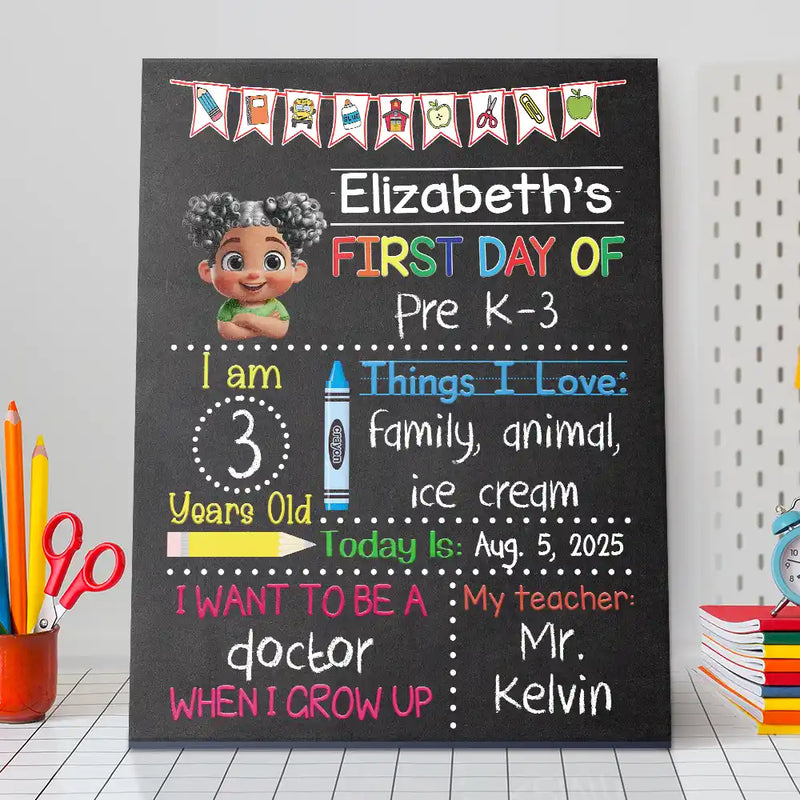 GLUE
Elizabeth's
FIRST DAY OF
Pre K-3
I am
3
Years Old
crayon
Things I Love:
family, animal,
ice cream
Today Is: Aug. 5, 2025
I WANT TO BE A
doctor
WHEN I GROW UP
My teacher:
Mr.
Kelvin